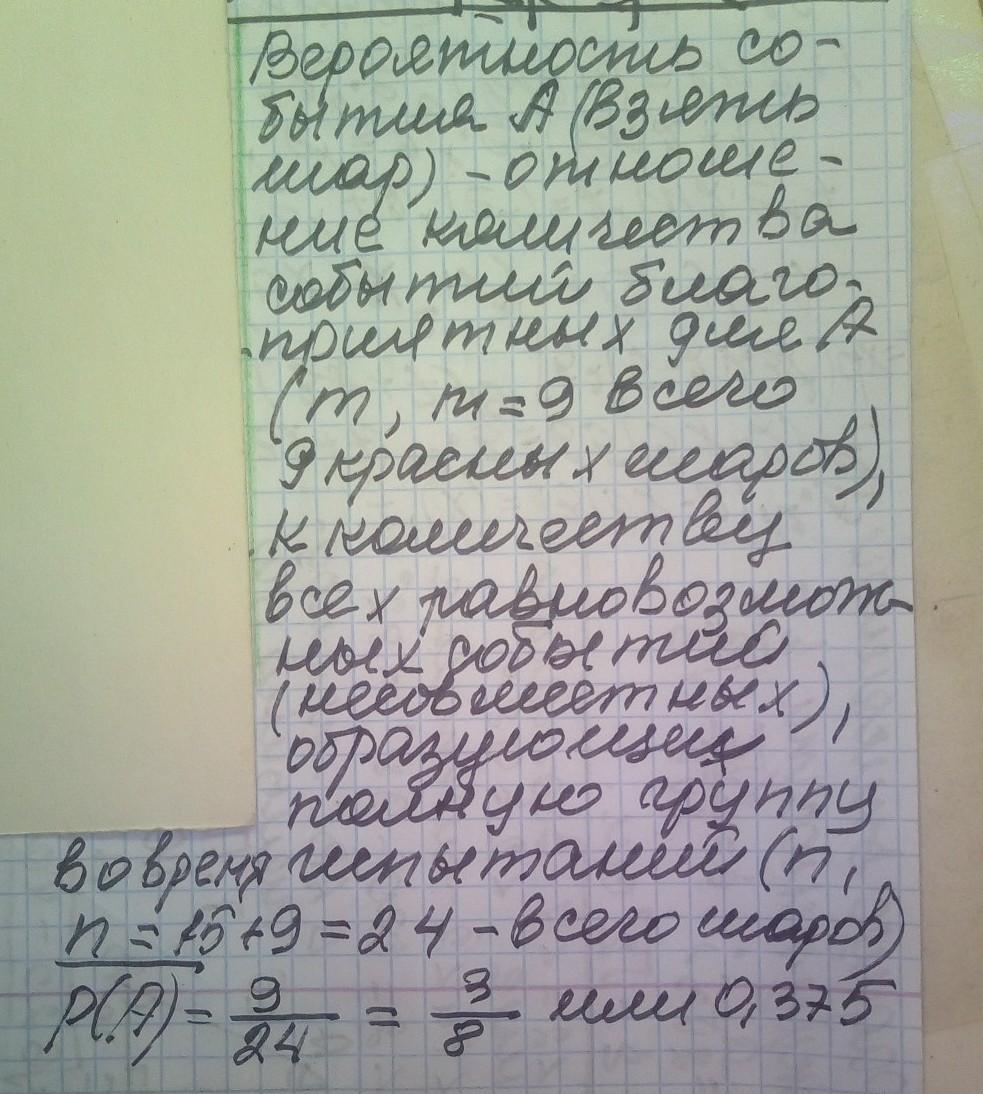 Вероятность со-
бытия А (взять
шар) - отноше-
ние количества
событий благо-
приятных для А
(m, m = 9 всего
9 красных шаров),
к количеству
всех равновозмож-
ных событий
(несовместных),
образующих
полную группу
во время испытаний (n,
n = 15 + 9 = 24 - всего шаров)
P(A) = 9/24 = 3/8 или 0,375